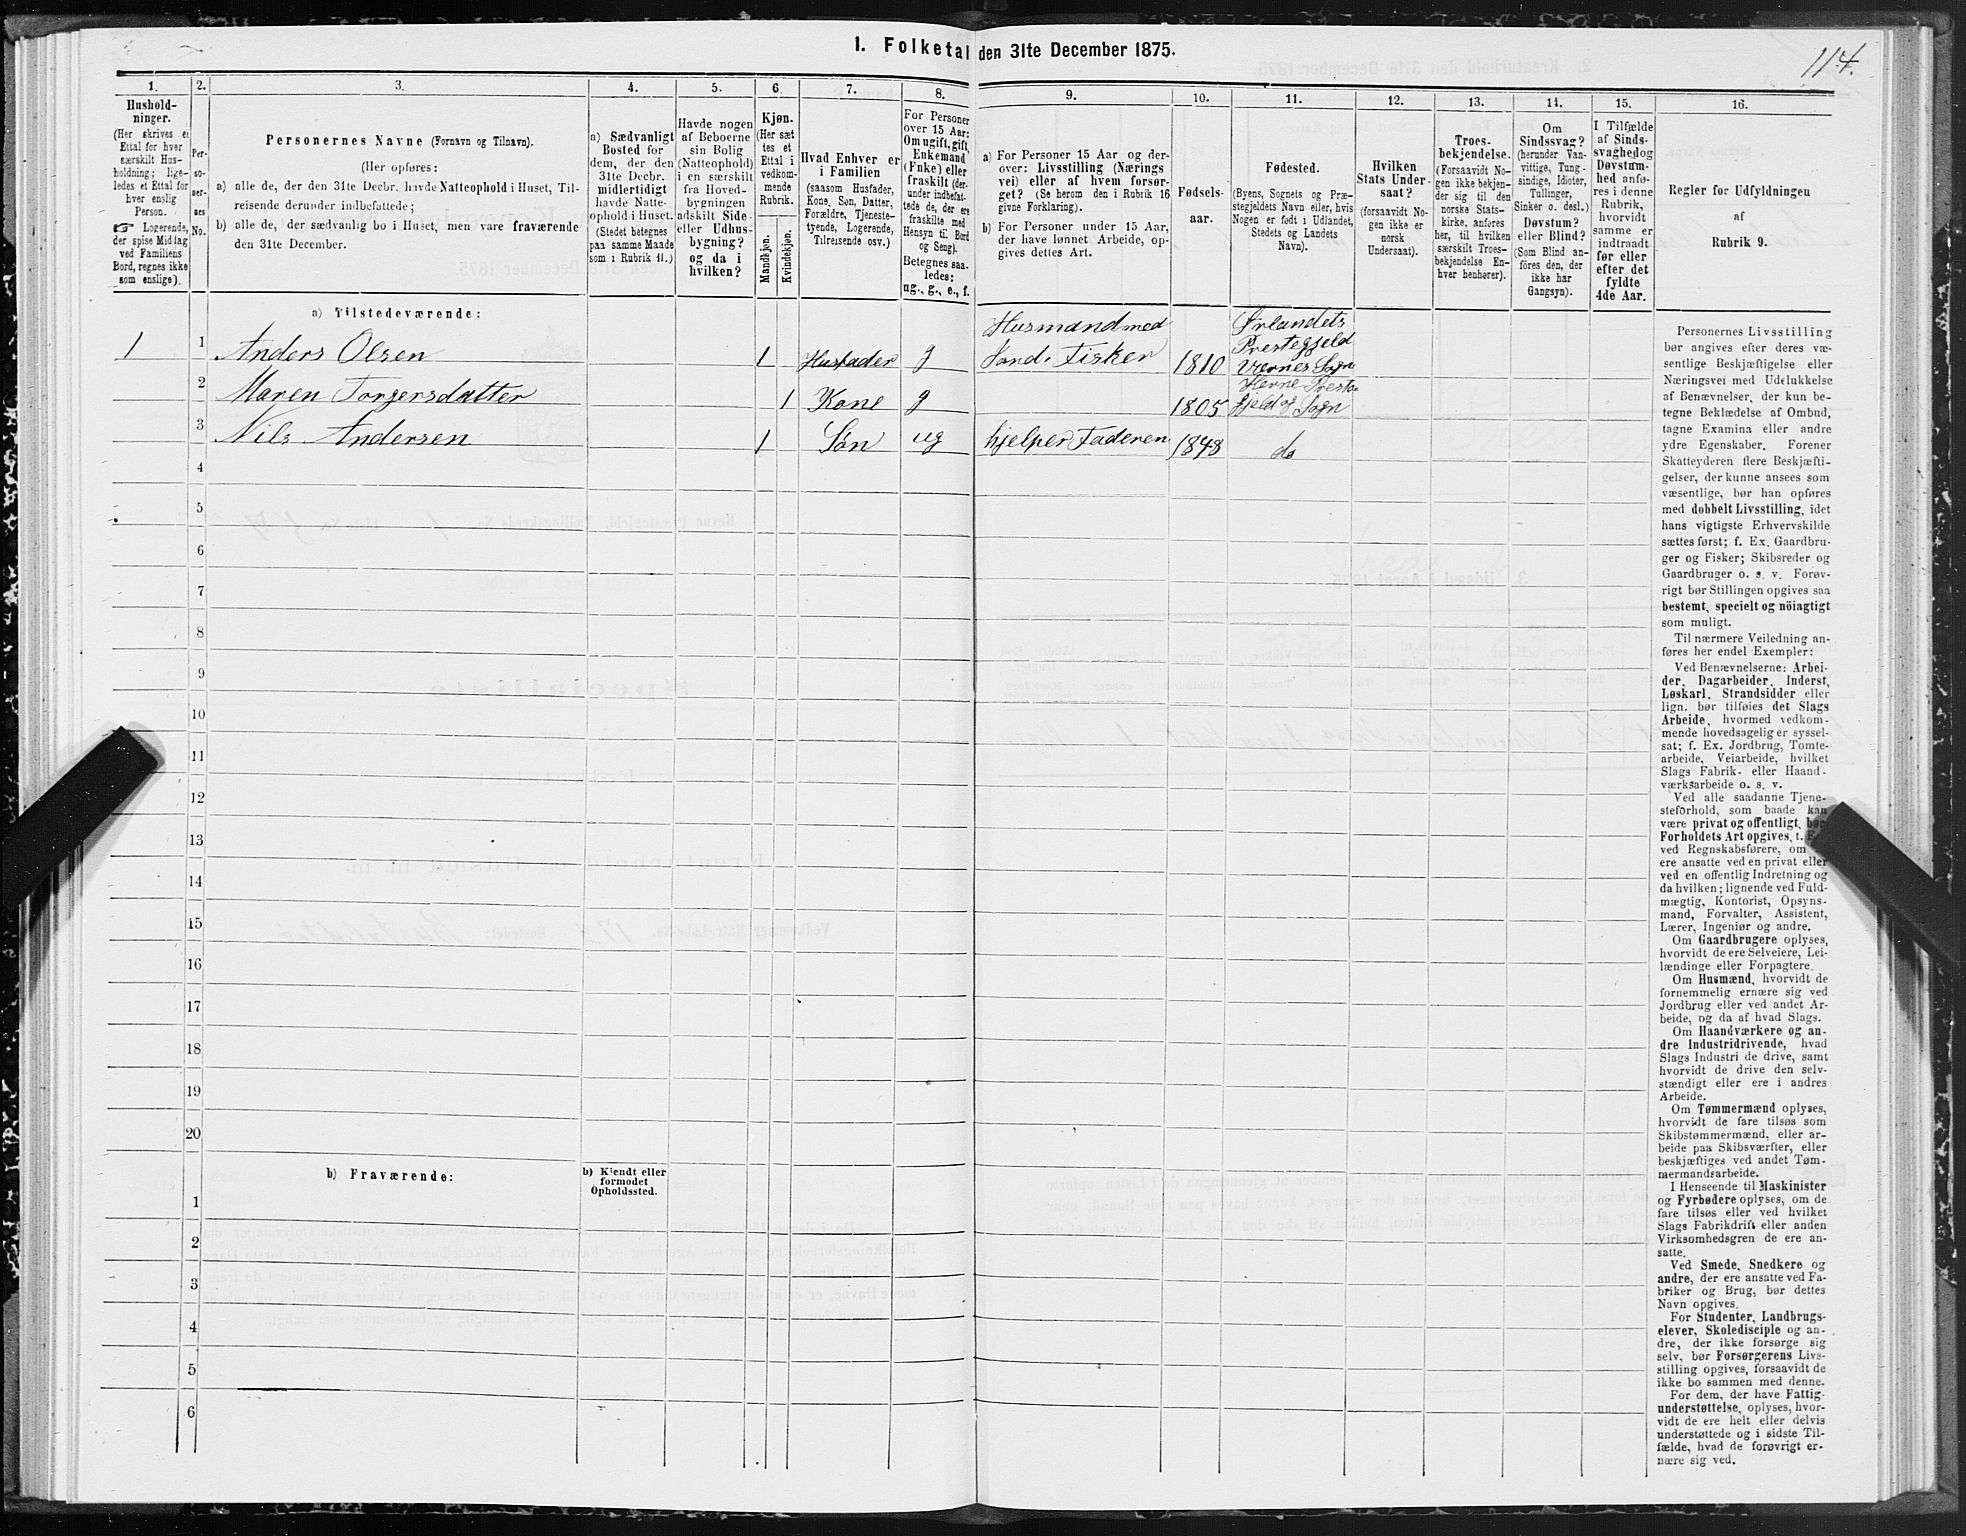 I. Folketal den 31te December 1875.
114.
1.
Hushold-
ninger.
(Her skrives et
Ettal for hver
særskilt Hus-
holdning; lige-
ledes et Ettal for
hver enslig
Person.
☞ Logerende,
der spise Middag
ved Familiens
Bord, regnes ikke
som enslige).
2.
Per-
so-
ner-
nes
No.
3.
Personernes Navne (Fornavn og Tilnavn).
(Her opføres:
a) alle de, der den 31te Decbr. havde Natteophold i Huset, Til-
reisende derunder indbefattede;
b) alle de, der sædvanlig bo i Huset, men vare fraværende
den 31te December.
4.
a) Sædvanligt
Bosted for
dem, der den
31te Decbr.
midlertidigt
havde Natte-
ophold i Huset.
(Stedet betegnes
paa samme Maade
som i Rubrik 11.)
5.
Havde nogen
af Beboerne
sin Bolig
(Natteophold)
i en særskilt
fra Hoved-
bygningen
adskilt Side-
eller Udhus-
bygning?
og da i
hvilken?
6.
Kjøn.
(Her sæt-
tes et
Ettal i
vedkom-
mende
Rubrik.
Mandkjøn.
Kvindekjøn.
7.
Hvad Enhver er
i Familien
(saasom Husfader,
Kone, Søn, Datter,
Forældre, Tjeneste-
tyende, Logerende,
Tilreisende osv.)
8.
For Personer
over 15 Aar:
Om ugift, gift,
Enkemand
(Enke) eller
fraskilt (der-
under indbefat-
tede de, der ere
fraskilte med
Hensyn til Bord
og Seng).
Betegnes saa-
ledes:
ug., g., e., f.
9.
a) For Personer 15 Aar og der-
over: Livsstilling (Nærings-
vei) eller af hvem forsør-
get? (Se herom den i Rubrik 16
givne Forklaring).
b) For Personer under 15 Aar,
der have lønnet Arbeide, op-
gives dettes Art.
10.
Fødsels-
aar.
11.
Fødested.
(Byens, Sognets og Præ-
stegjeldets Navn eller, hvis
Nogen er født i Udlandet,
Stedets og Landets
Navn).
12.
Hvilken
Stats Under-
saat?
(forsaavidt No-
gen ikke er
norsk
Undersaat).
13.
Troes-
bekjendelse.
(Forsaavidt No-
gen ikke bekjen-
der sig til den
norske Stats-
kirke, anføres
her, til hvilken
særskilt Troes-
bekjendelse En-
hver henhører).
14.
Om
Sindssvag?
(herunder Van-
vittige, Tung-
sindige, Idioter,
Tullinger,
Sinker o. desl.)
Døvstum?
eller Blind?
(Som Blind an-
føres den, der
ikke har
Gangsyn).
15.
I Tilfælde
af Sinds-
svaghed og
Døvstum-
hed anfø-
res i denne
Rubrik,
hvorvidt
samme er
indtraadt
før eller
efter det
fyldte
4de Aar.
16.
Regler for Udfyldningen
af
Rubrik 9.
a) Tilstedeværende:
1 1 Anders Olsen 1 Husfader g Husmand med
Jord. Fisker 1810 Ørlandets
Prestegjeld
Værnes Sogn
2 Maren Torgersdatter 1 Kone g 1805 Hevne Preste
gjeld og Sogn
3 Nils Andersen 1 Søn ug hjelper Faderen 1848 do
4
5
6
7
8
9
10
11
12
13
14
15
16
17
18
19
20
b) Fraværende:
b) Kjendt eller
formodet
Opholdssted.
1
2
3
4
5
6
Personernes Livsstilling
bør angives efter deres væ-
sentlige Beskjæftigelse eller
Næringsvei med Udelukkelse
af Benævnelser, der kun be-
tegne Beklædelse af Ombud,
tagne Examina eller andre
ydre Egenskaber. Forener
Skatteyderen flere Beskjæfti-
gelser, der kunne ansees som
væsentlige, bør han opføres
med dobbelt Livsstilling, idet
hans vigtigste Erhvervskilde
sættes først; f. Ex. Gaardbru-
ger og Fisker; Skibsreder og
Gaardbruger o. s. v. Forøv-
rigt bør Stillingen opgives saa
bestemt, specielt og nöiagtigt
som muligt.
Til nærmere Veiledning an-
føres her endel Exempler:
Ved Benævnelserne: Arbei-
der, Dagarbeider, Inderst,
Løskarl, Strandsidder eller
lign. bør tilføies det Slags
Arbeide, hvormed vedkom-
mende hovedsagelig er syssel-
sat; f. Ex. Jordbrug, Tomte-
arbeide, Veiarbeide, hvilket
Slags Fabrik- eller Haand-
værksarbeide o. s. v.
Ved alle saadanne Tjene-
steforhold, som baade kan
være privat og offentligt, bør
Forholdets Art opgives, t. E
ved Regnskabsførere, om
ere ansatte ved en privat eller
ved en offentlig Indretning og
da hvilken; lignende ved Fuld-
mægtig, Kontorist, Opsyns-
mand, Forvalter, Assistent,
Lærer, Ingeniør og andre.
Om Gaardbrugere oplyses,
hvorvidt de ere Selveiere, Lei-
lændinge eller Forpagtere.
Om Husmænd, hvorvidt de
fornemmelig ernære sig ved
Jordbrug eller ved andet Ar-
beide, og da af hvad Slags.
Om Haandværkere og an-
dre Industridrivende, hvad
Slags Industri de drive, samt
hvorvidt de drive den selv-
stændigt eller ere i andres
Arbeide.
Om Tømmermænd oplyses,
hvorvidt de fare tilsøs som
Skibstømmermænd, eller ar-
beide paa Skibsværfter, eller
beskjæftiges ved andet Tøm-
mermandsarbeide.
I Henseende til Maskinister
og Fyrbødere oplyses, om de
fare tilsøs eller ved hvilket
Slags Fabrikdrift eller anden
Virksomhedsgren de ere an-
satte.
Ved Smede, Snedkere og
andre, der ere ansatte ved Fa-
briker og Brug, bør dettes
Navn opgives.
For Studenter, Landbrugs-
elever, Skoledisciple og an-
dre, der ikke forsørge sig
selv, bør Forsørgerens Livs-
stilling opgives, forsaavidt de
ikke bo sammen med denne.
For dem, der have Fattig-
understøttelse, oplyses, hvor-
vidt de ere helt eller delvis
understøttede og i sidste Til-
fælde, hvad de forøvrigt er-
nære sig ved.